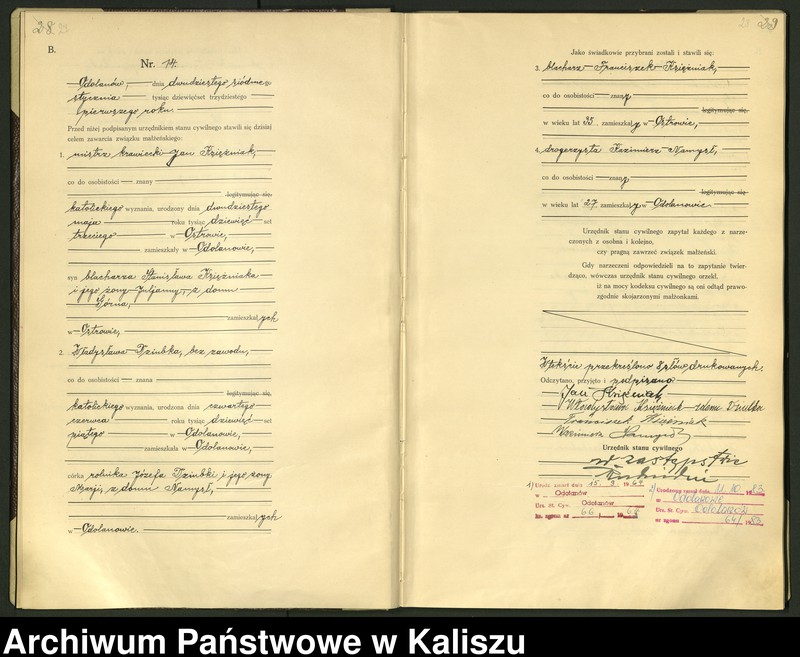 28
B.
Nr. 14.
Odolanów, dnia dwudziestego siódmego
stycznia tysiąc dziewięćset trzydziestego
pierwszego roku.
Przed niżej podpisanym urzędnikiem stanu cywilnego stawili się dzisiaj
celem zawarcia związku małżeńskiego:
1. mistrz krawiecki Jan Księżniak,
co do osobistości znany
legitymując się
katolickiego wyznania, urodzony dnia dwudziestego
maja roku tysiąc dziewięć set
trzeciego w Ostrowie,
zamieszkały w Odolanowie,
syn blacharza Stanisława Księżniaka
i jego żony Juljanny, z domu
Górna,
zamieszkałych
w Ostrowie,
2. Władysława Dziubka, bez zawodu,
co do osobistości znana
legitymując się
katolickiego wyznania, urodzona dnia czwartego
czerwca roku tysiąc dziewięć set
piątego w Odolanowie,
zamieszkała w Odolanowie,
córka rolnika Józefa Dziubki i jego żony
Marji, z domu Namysł,
zamieszkałych
w Odolanowie.
29
Jako świadkowie przybrani zostali i stawili się:
3. blacharz Franciszek Księżniak,
co do osobistości znany
legitymując się
w wieku lat 35, zamieszkały w Ostrowie,
4. drogerzysta Kazimierz Namysł,
co do osobistości znany
legitymując się
w wieku lat 27 zamieszkały w Odolanowie.
Urzędnik stanu cywilnego zapytał każdego z narze-
czonych z osobna i kolejno,
czy pragną zawrzeć związek małżeński.
Gdy narzeczeni odpowiedzieli na to zapytanie twier-
dząco, wówczas urzędnik stanu cywilnego orzekł,
iż na mocy kodeksu cywilnego są oni odtąd prawo-
zgodnie skojarzonymi małżonkami.
W tekście przekreślono 8 słów drukowanych.
Odczytano, przyjęto i podpisano
Jan Księżniak
Władysława Księżniak z domu Dziubka
Franciszek Księżniak
Kazimierz Namysł
Urzędnik stanu cywilnego
w zastępstwie
1) Urodz. zmarł dnia 15. 9 1968
w Odolanów
Urz. St. Cyw. Odolanów
ks. zgonu nr 66 / 1968
2) Urodzona zmarł dnia 31. 10 1983
w Odolanowie
Urz. St. Cyw. Odolanów
nr zgonu 64 / 1983
Archiwum Państwowe w Kaliszu